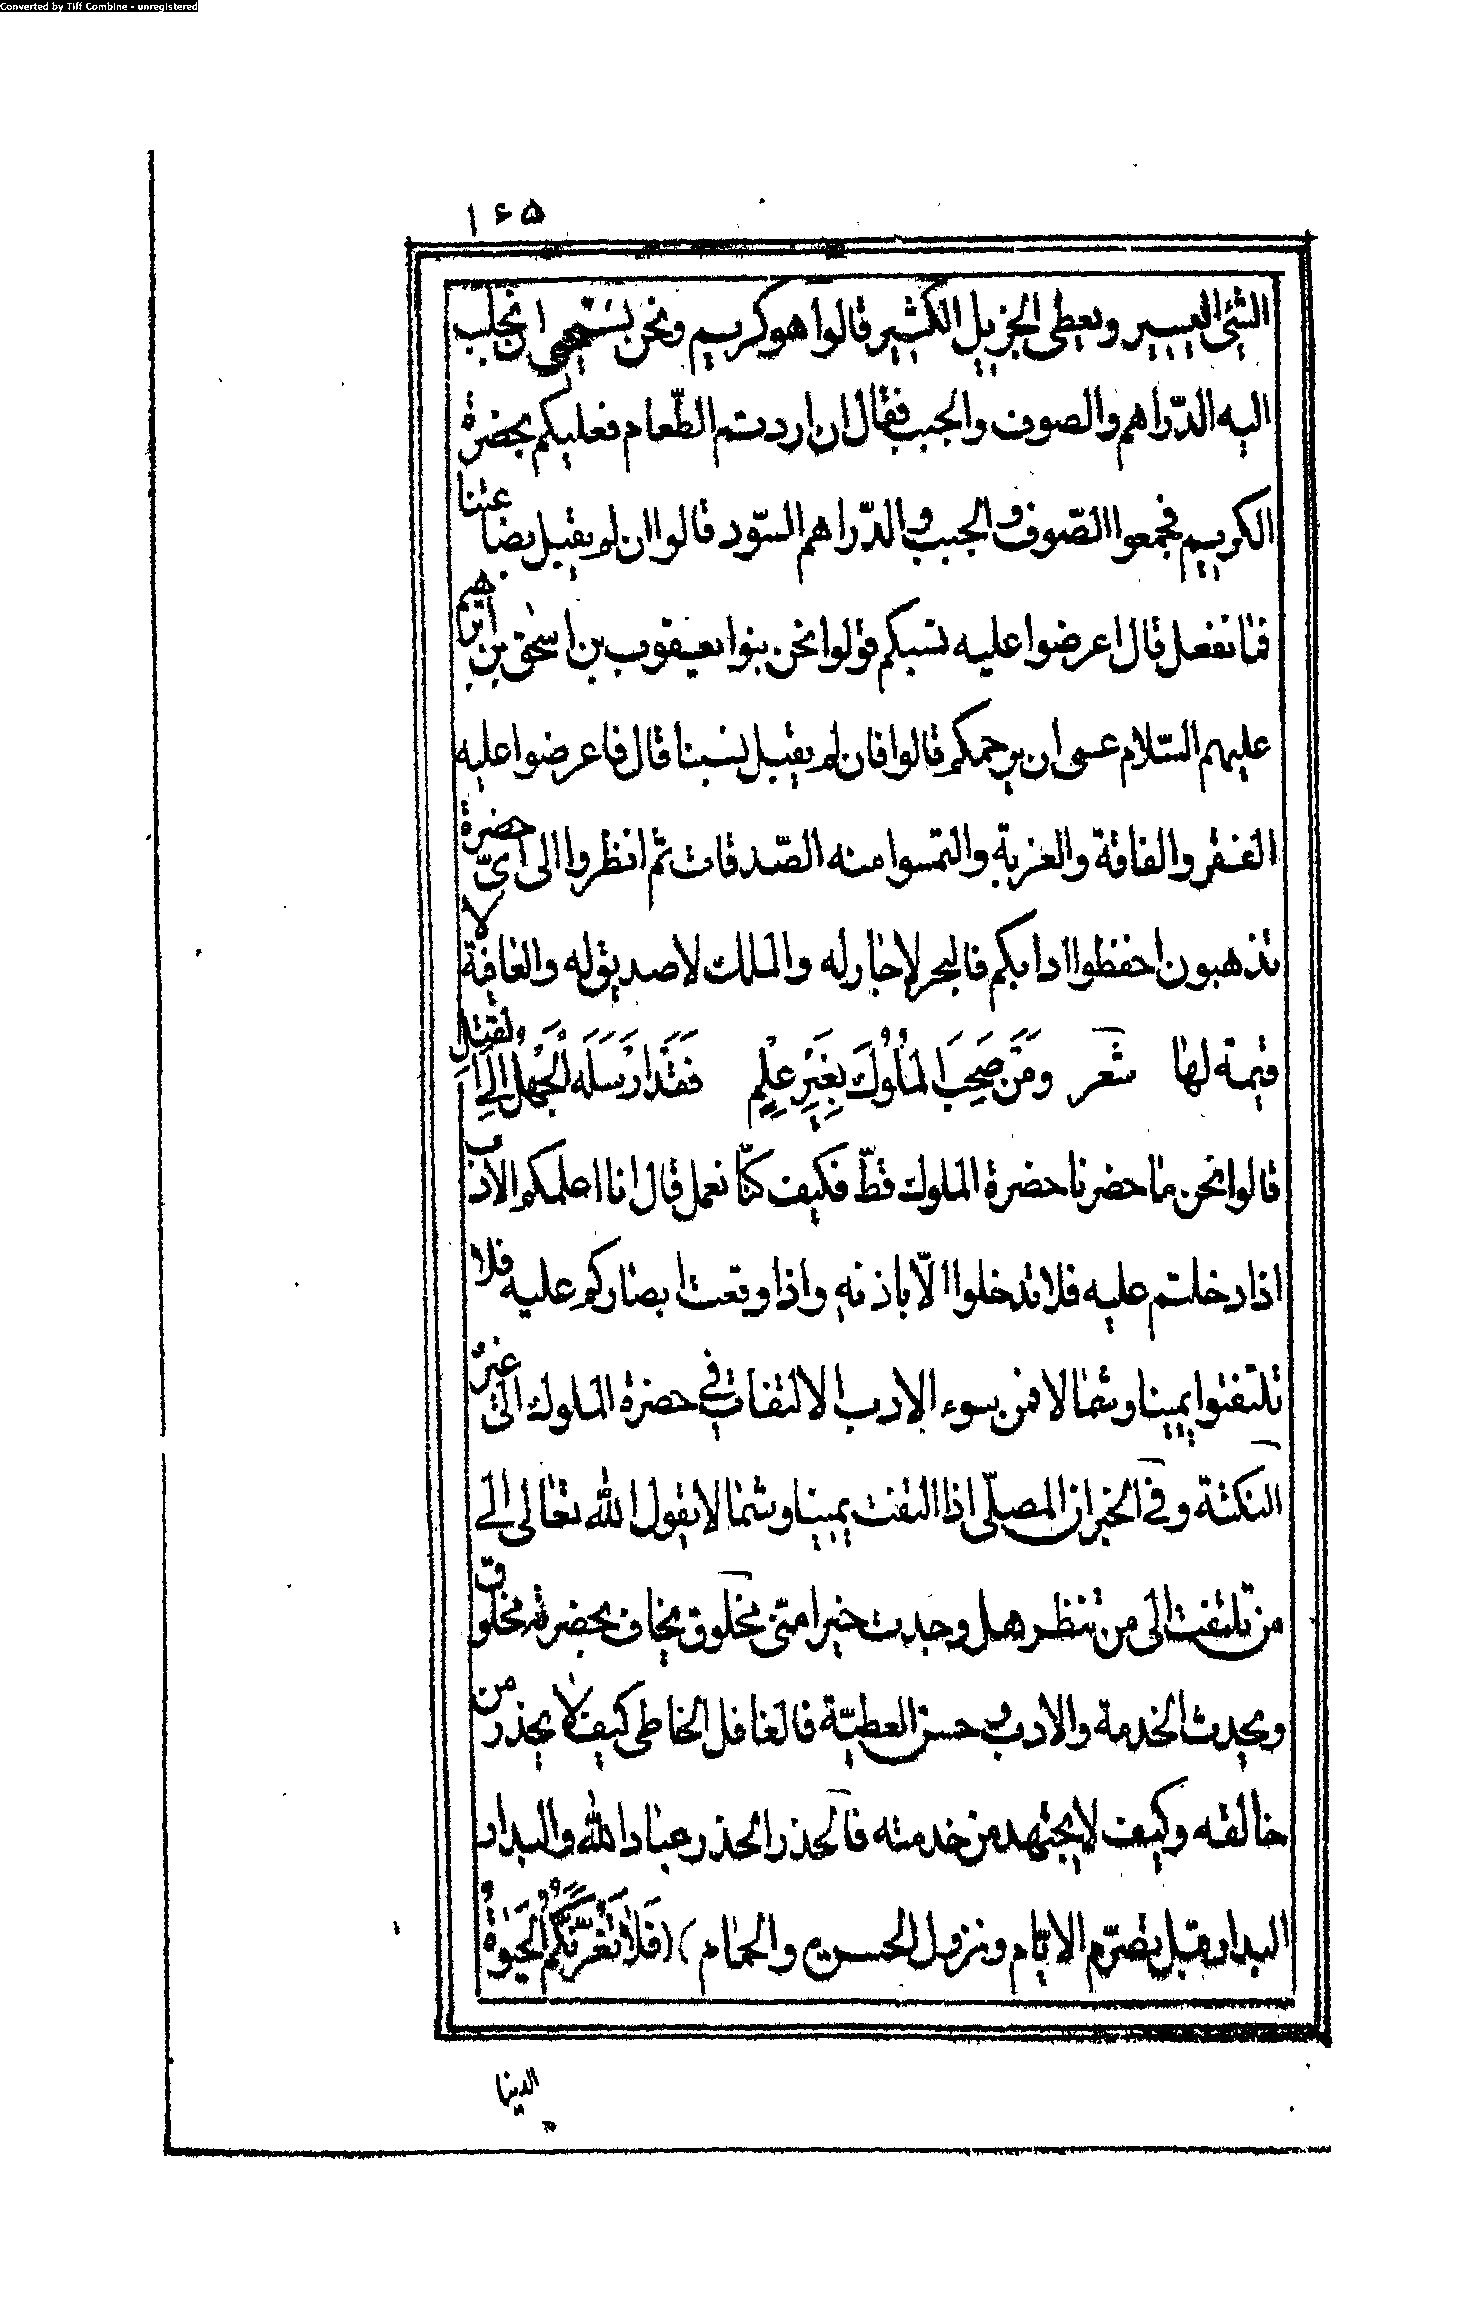 Converted by Tiff Combine - unregistered
١٤٥
الشئ اليسير ويعطى الجزيل الكثير قالوا هو كريم ونحن نستحيى ان نجلب
اليه الدّراهم والصوف والجبن فقال ان اردتم الطّعام فعليكم بحضرة
الكريم فجمعوا الصّوف والجبن والدّراهم السّود قالوا ان لم يقبل بضاعتنا
فما نفعل قال اعرضوا عليه نسبكم قولوا نحن بنوا يعقوب بن اسحٰق بن ابرٰهيم
عليهم السّلام عسى ان يرحمكم قالوا فان لم يقبل نسبنا قال فاعرضوا عليه
الفقر والفاقة والغربة والتمسوا منه الصّدقات ثمّ انظروا الى اىّ حضرة
تذهبون احفظوا ادابكم فالبحر لا جار له والملك لا صديق له والعافية لا
قيمة لها شعر ومَنْ صَحِبَ المُلُوكَ بِغَيْرِ عِلْمٍ فَقَدْ ارْسَلَه الْجَهْلُ اِلَى القَتْلِ
قالوا نحن ما حضرنا حضرة الملوك قطّ فكيف كنّا نعمل قال انا اعلمكم الادب
اذا دخلتم عليه فلا تدخلوا الّا باذنه واذا وقعت ابصاركم عليه فلا
تلتفتوا يمينا وشمالا فمن سوء الادب الالتفات فى حضرة الملوك الى غير
النكتة وفى الخبر ان المصلّى اذا التفت يمينا وشمالا يقول الله تعالى الى
من تلتفت الى من تنظر هل وجدت خيرا منّى مخلوق يخاف بحضرة مخلوق
ويحدث الخدمة والادب وحسن العطيّة فالغافل الخاطى كيف لا يحذر من
خالقه وكيف لا يجتهد من خدمته فالحذر الحذر عباد الله والبدار
البدار قبل تصرّم الايّام ونزول الحسرة والحمام (فَلَا تَغُرَّنَّكُمُ الْحَيٰوةُ
الدنيا